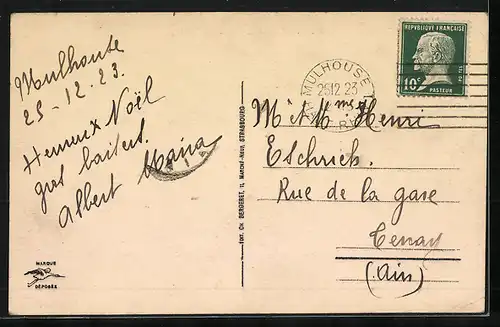 Mulhouse
25-12.23.
Heureux Noël
gros baisers.
Albert Maria
MARQUE
DÉPOSÉE
EDIT. CH. BERGERET, 11, MARCHÉ-NEUF, STRASBOURG
MULHOUSE
25 12 23
RÉPUBLIQUE FRANÇAISE
10c
PASTEUR
M. et Mme Henri
Eschrich.
Rue de la gare
Tenay
(Ain)